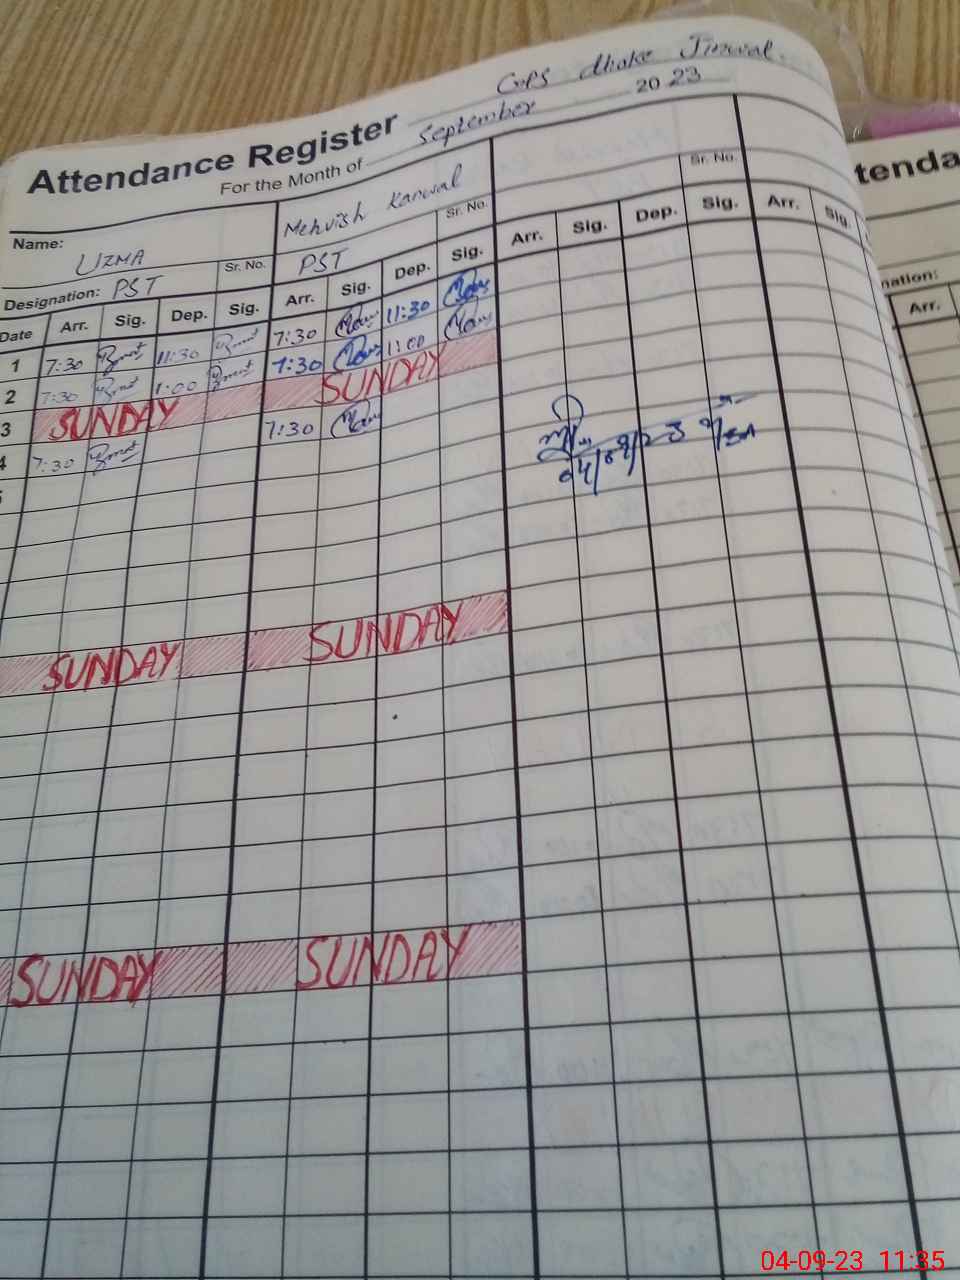 GGPS dhoke Jinwal.
Attendance Register
For the Month of September 2023
Name: UZMA Mehvish Kanwal
Designation: PST Sr. No. PST Sr. No. Sr. No.
Date Arr. Sig. Dep. Sig. Arr. Sig. Dep. Sig. Arr. Sig. Dep. Sig. Arr. Sig.
1 7:30 11:30 7:30 11:30
2 7:30 1:00 7:30 1:00
3 SUNDAY SUNDAY
4 7:30 7:30
5
04/09/23
SUNDAY SUNDAY
SUNDAY SUNDAY
tenda
nation:
Arr.
04-09-23 11:35